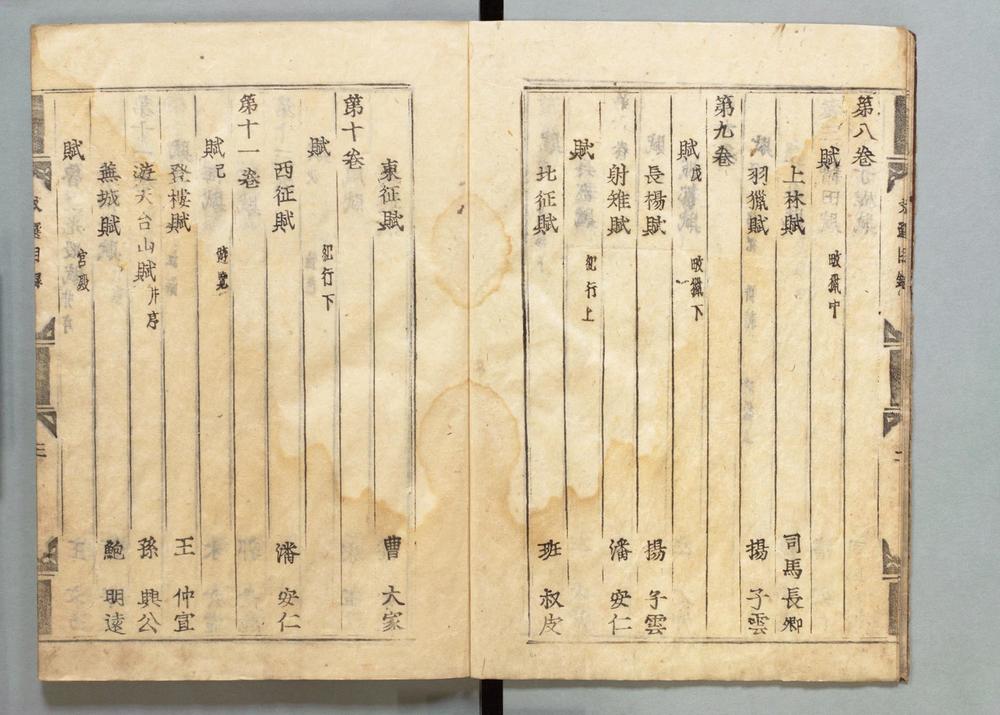 第八卷
賦 畋獵中
上林賦 司馬長卿
羽獵賦 揚子雲
第九卷
賦戊 畋獵下
長楊賦 揚子雲
射雉賦 潘安仁
賦 紀行上
北征賦 班叔皮
東征賦 曹大家
第十卷
賦 紀行下
西征賦 潘安仁
第十一卷
賦己 遊覽
登樓賦 王仲宣
遊天台山賦 幷序 孫興公
蕪城賦 鮑明遠
賦 宮殿
文選目錄 二
文選目錄 三